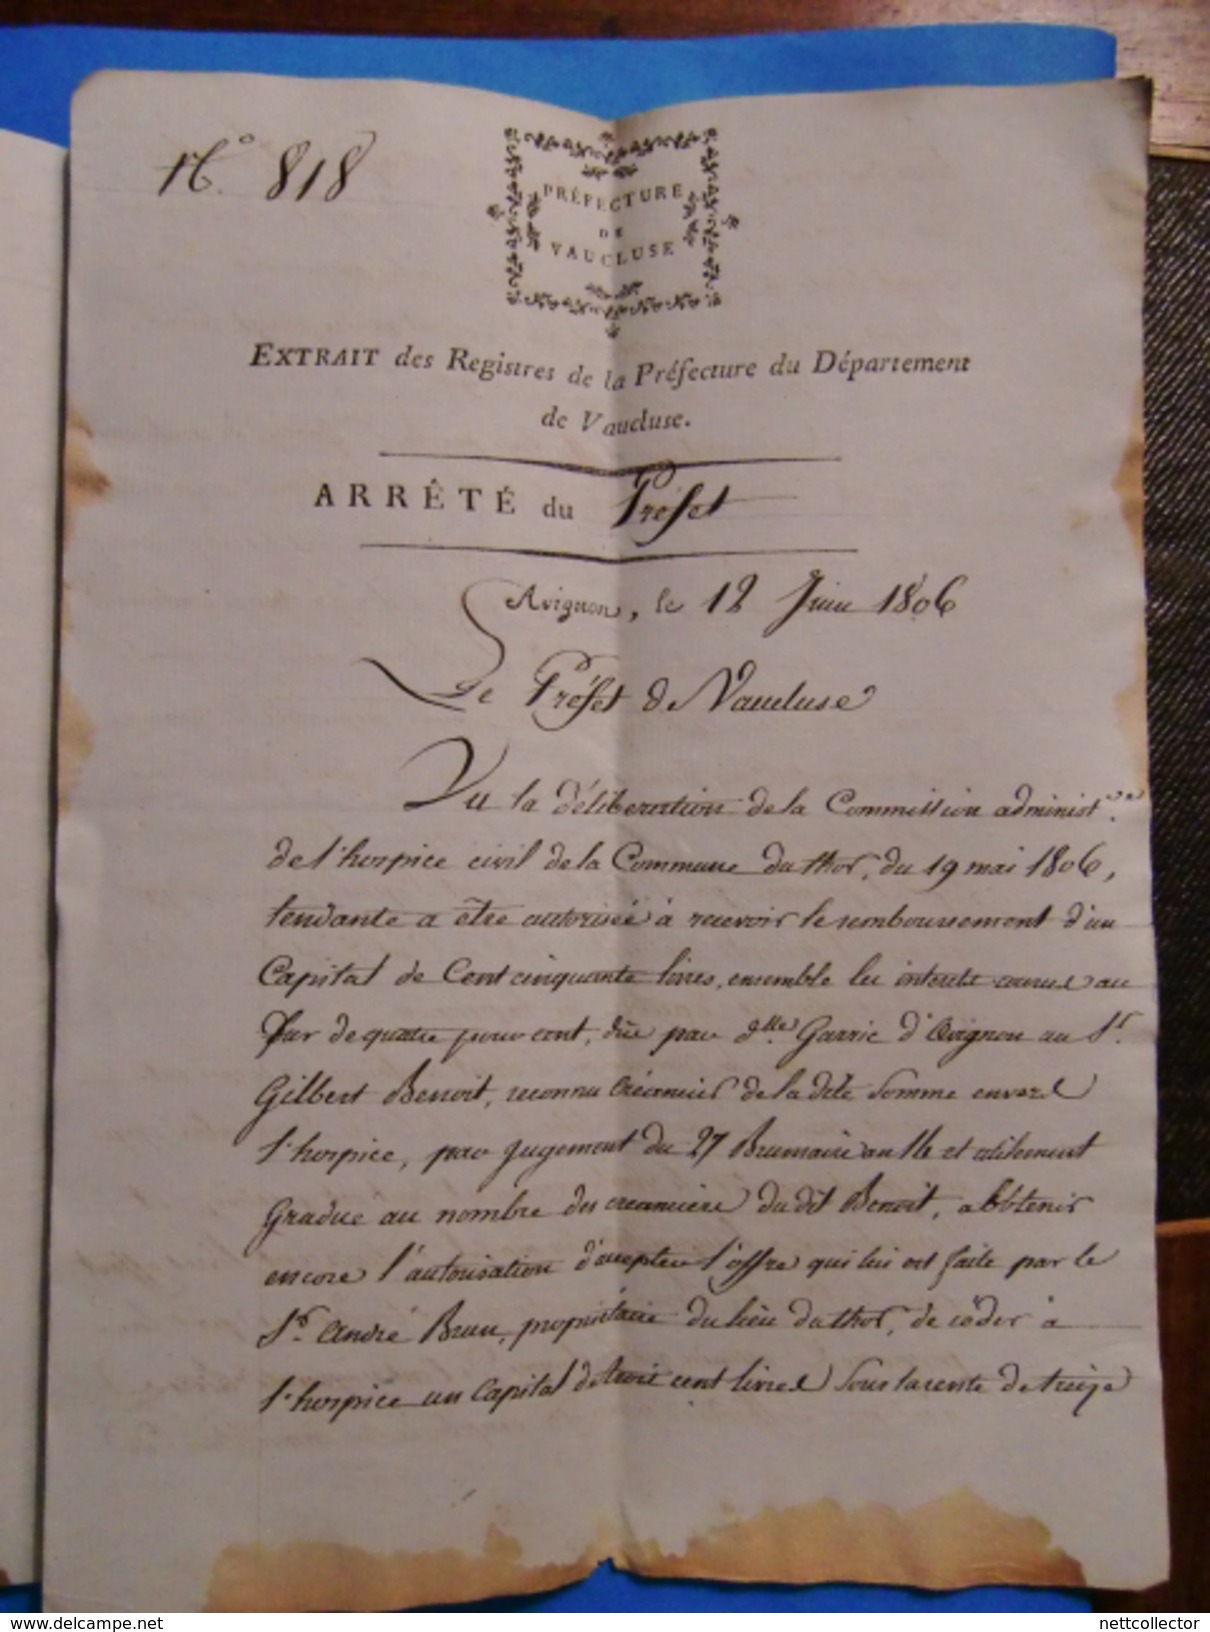 N.° 818
PRÉFECTURE
DE
VAUCLUSE
EXTRAIT des Registres de la Préfecture du Département
de Vaucluse.
ARRÊTÉ du Préfet
Avignon, le 12 Juin 1806
Le Préfet de Vaucluse
Vu la délibération de la Commission administ.ve
de l'hospice civil de la Commune du thor, du 19 mai 1806,
tendante a être autorisée à recevoir le remboursement d'un
Capital de Cent cinquante livres, ensemble les interets courus au
fur de quatre pour cent, dûe par d.lle Garric d'Avignon au S.r
Gilbert Benoit, reconnu créancier de la dite Somme envers
l'hospice, par jugement du 27 Brumaire an 14 et utilement
Gradué au nombre des créanciers du dit Benoit, a obtenir
encore l'autorisation d'accepter l'offre qui lui est faite par le
S.r André Brun, propriétaire du lieu du thor, de céder à
l'hospice un Capital de trois cent livres Sous la rente de treize
www.delcampe.net
nettcollector